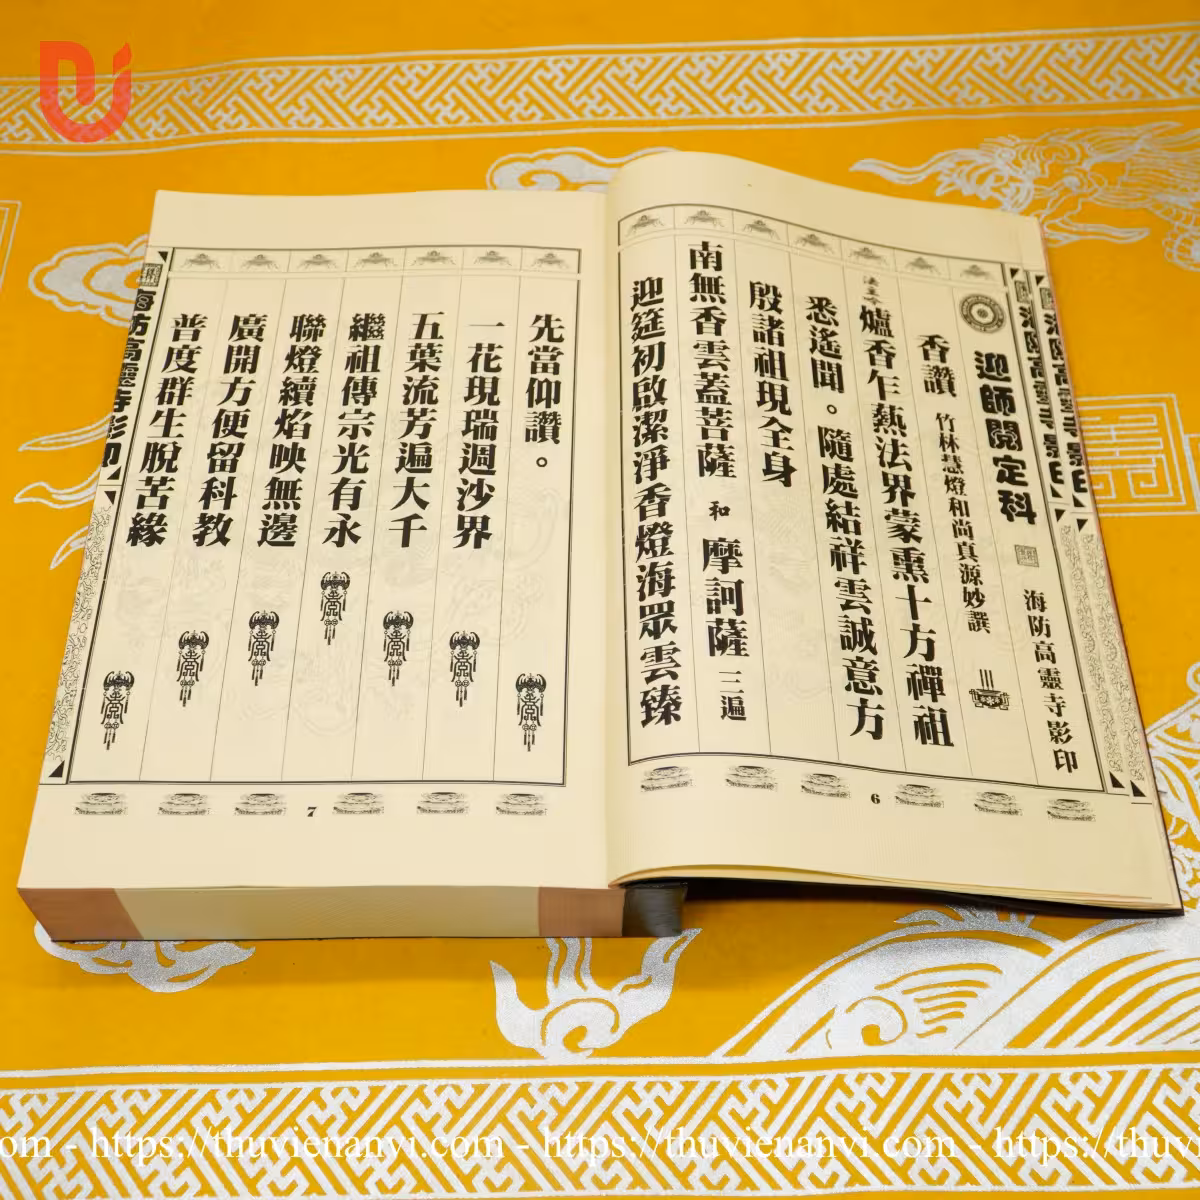 迎師開定科
海防高靈寺影印
香讚 竹林慧燈和尚真源妙譔
爐香乍熱法界蒙熏十方禪祖
悉遙聞。隨處結祥雲誠意方
殷諸祖現全身
南無香雲蓋菩薩 和 摩訶薩 三遍
迎筵初啟潔淨香燈海眾雲臻
6
先當仰讚。
一花現瑞週沙界
五葉流芳遍大千
繼祖傳宗光有永
聯燈續焰映無邊
廣開方便留科教
普度群生脫苦緣
7
com - https://thuvienanvi.com - https://thuvienanvi.com - https://thuvi